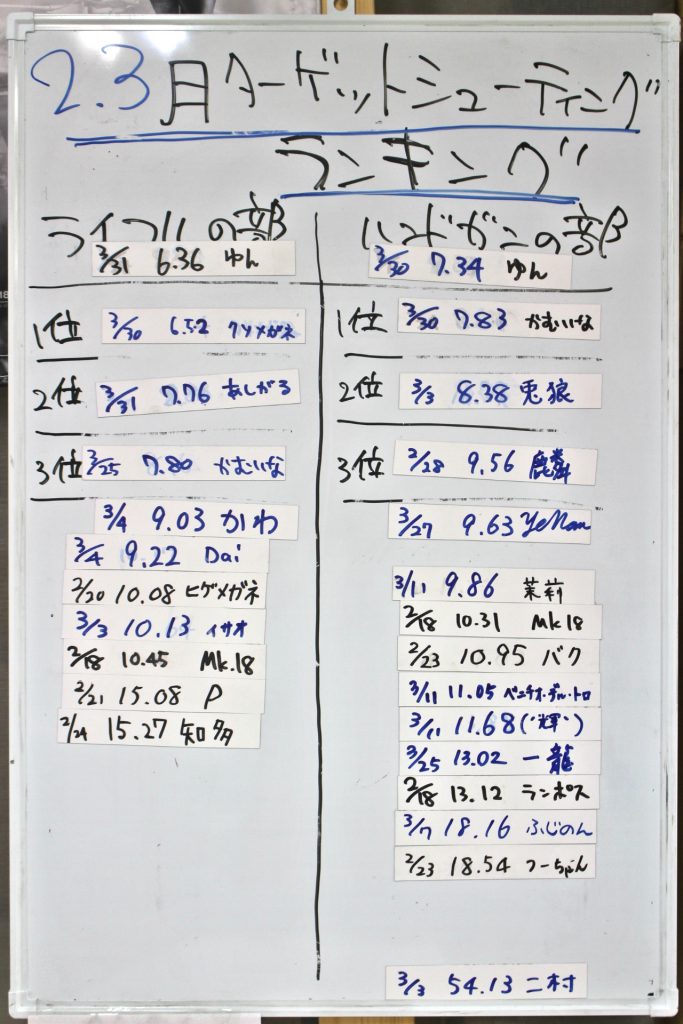 2.3月ターゲットシューティング
ランキング
ライフルの部
3/31 6.36 ゆん
1位 3/30 6.52 クソメガネ
2位 3/31 7.76 あしがる
3位 3/25 7.80 かむいな
3/4 9.03 かわ
3/4 9.22 Dai
2/20 10.08 ヒゲメガネ
3/3 10.13 イサオ
2/18 10.45 Mk.18
2/21 15.08 P
2/24 15.27 知多
ハンドガンの部
3/30 7.34 ゆん
1位 3/30 7.83 かむいな
2位 3/3 8.38 兎狼
3位 2/28 9.56 麟
3/27 9.63 YeMan
3/11 9.86 茉莉
2/18 10.31 Mk.18
2/23 10.95 バク
3/11 11.05 ベニチオ・デル・トロ
3/11 11.68 (´輝`)
3/25 13.02 一龍
2/18 13.12 ランポス
3/7 18.16 ふじのん
2/23 18.54 つーちゃん
3/3 54.13 二村